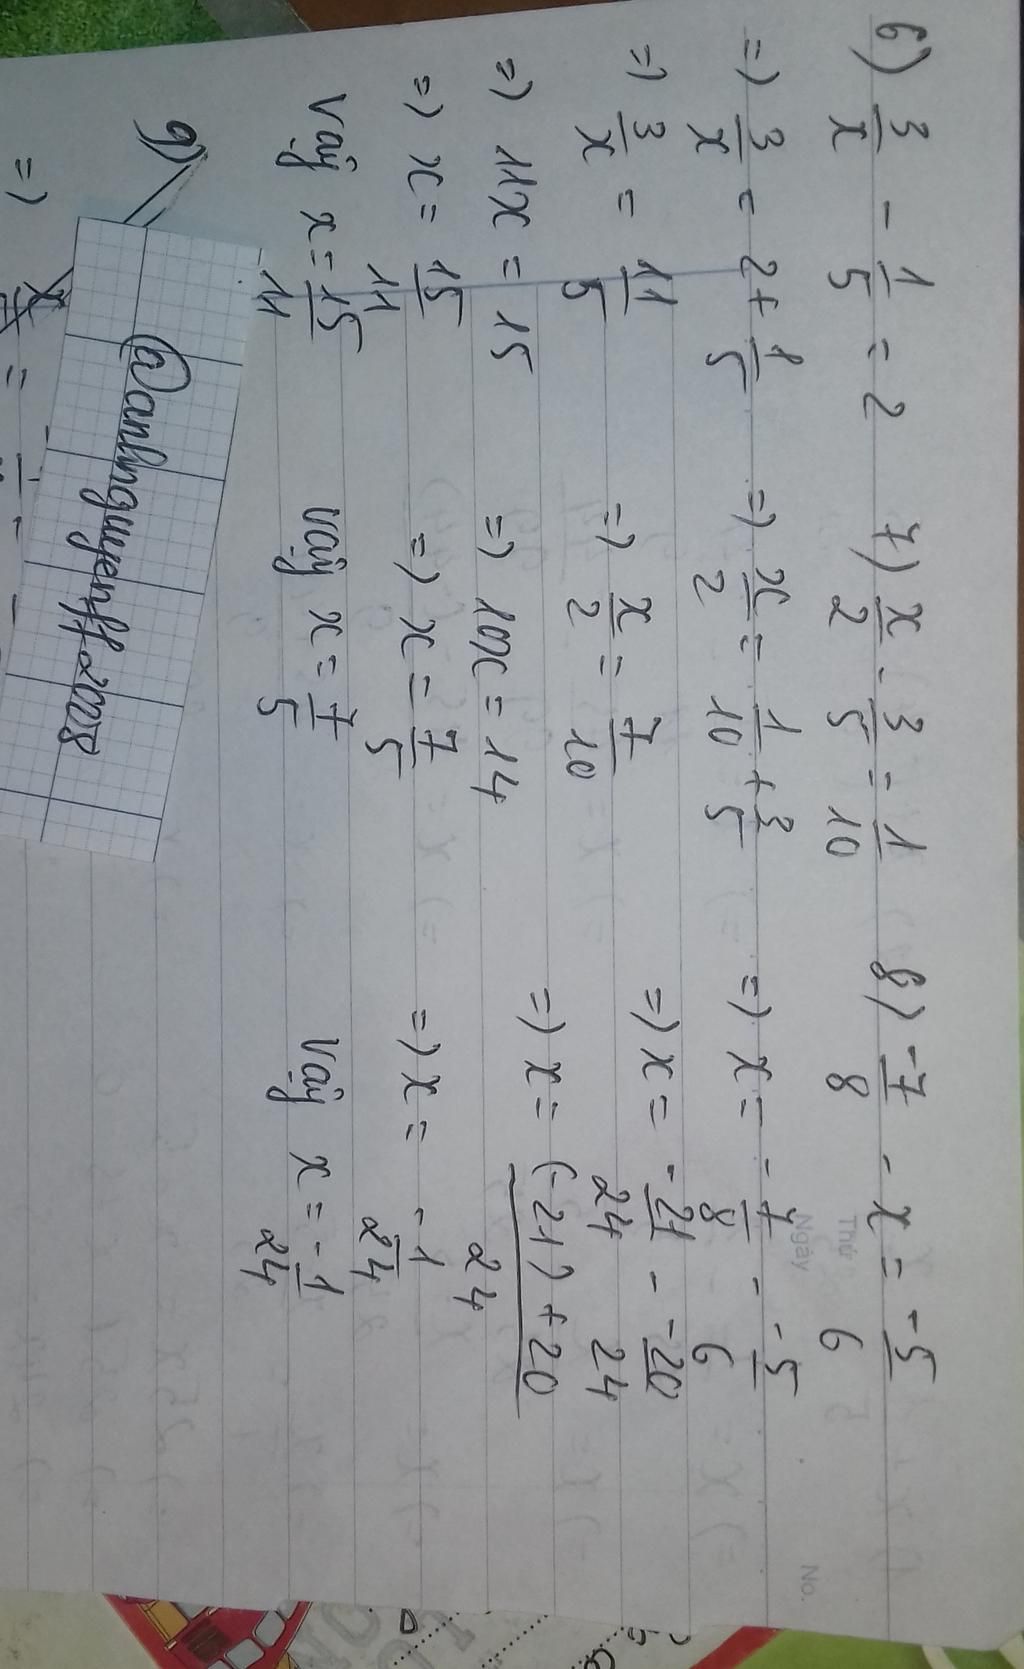 6) 3/x - 1/5 = 2
=) 3/x = 2 + 1/5
=) 3/x = 11/5
=) 11x = 15
=) x = 15/11
Vậy x = 15/11
7) x/2 - 3/5 = 1/10
=) x/2 = 1/10 + 3/5
=) x/2 = 7/10
=) 10x = 14
=) x = 7/5
Vậy x = 7/5
8) -7/8 - x = -5/6
=) x = -7/8 - -5/6
=) x = -21/24 - -20/24
=) x = (-21) + 20/24
=) x = -1/24
Vậy x = -1/24
9)
=)
@anhnguyenff2008
Thứ
Ngày
No.